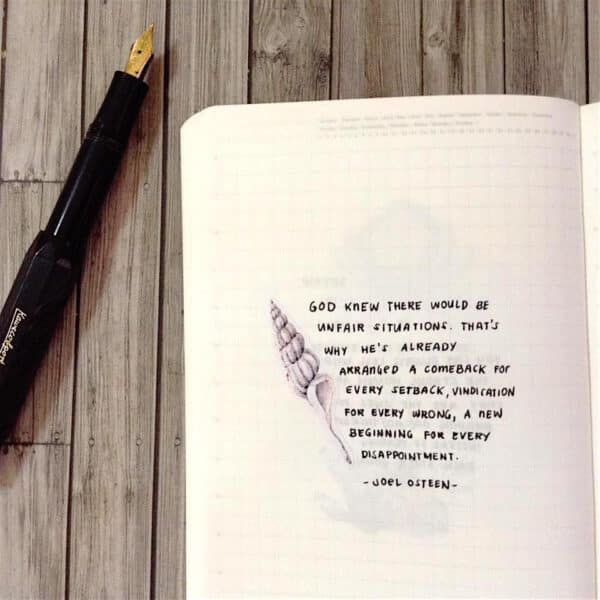 Kaweco Sport
GOD KNEW THERE WOULD BE
UNFAIR SITUATIONS. THAT'S
WHY HE'S ALREADY
ARRANGED A COMEBACK FOR
EVERY SETBACK, VINDICATION
FOR EVERY WRONG, A NEW
BEGINNING FOR EVERY
DISAPPOINTMENT.
-JOEL OSTEEN-